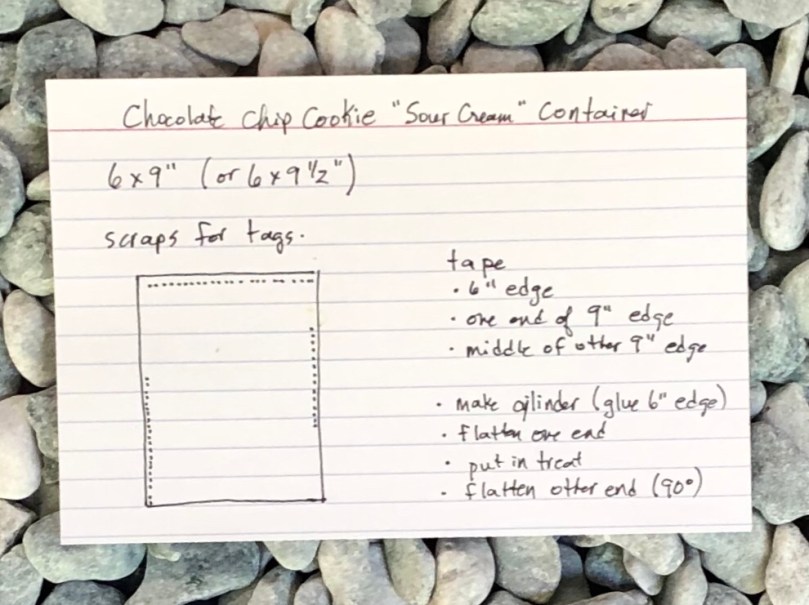 Chocolate Chip Cookie "Sour Cream" Container
6 x 9" (or 6 x 9 1/2")
scraps for tags.
tape
• 6" edge
• one end of 9" edge
• middle of other 9" edge
• make cylinder (glue 6" edge)
• flatten one end
• put in treat
• flatten other end (90°)